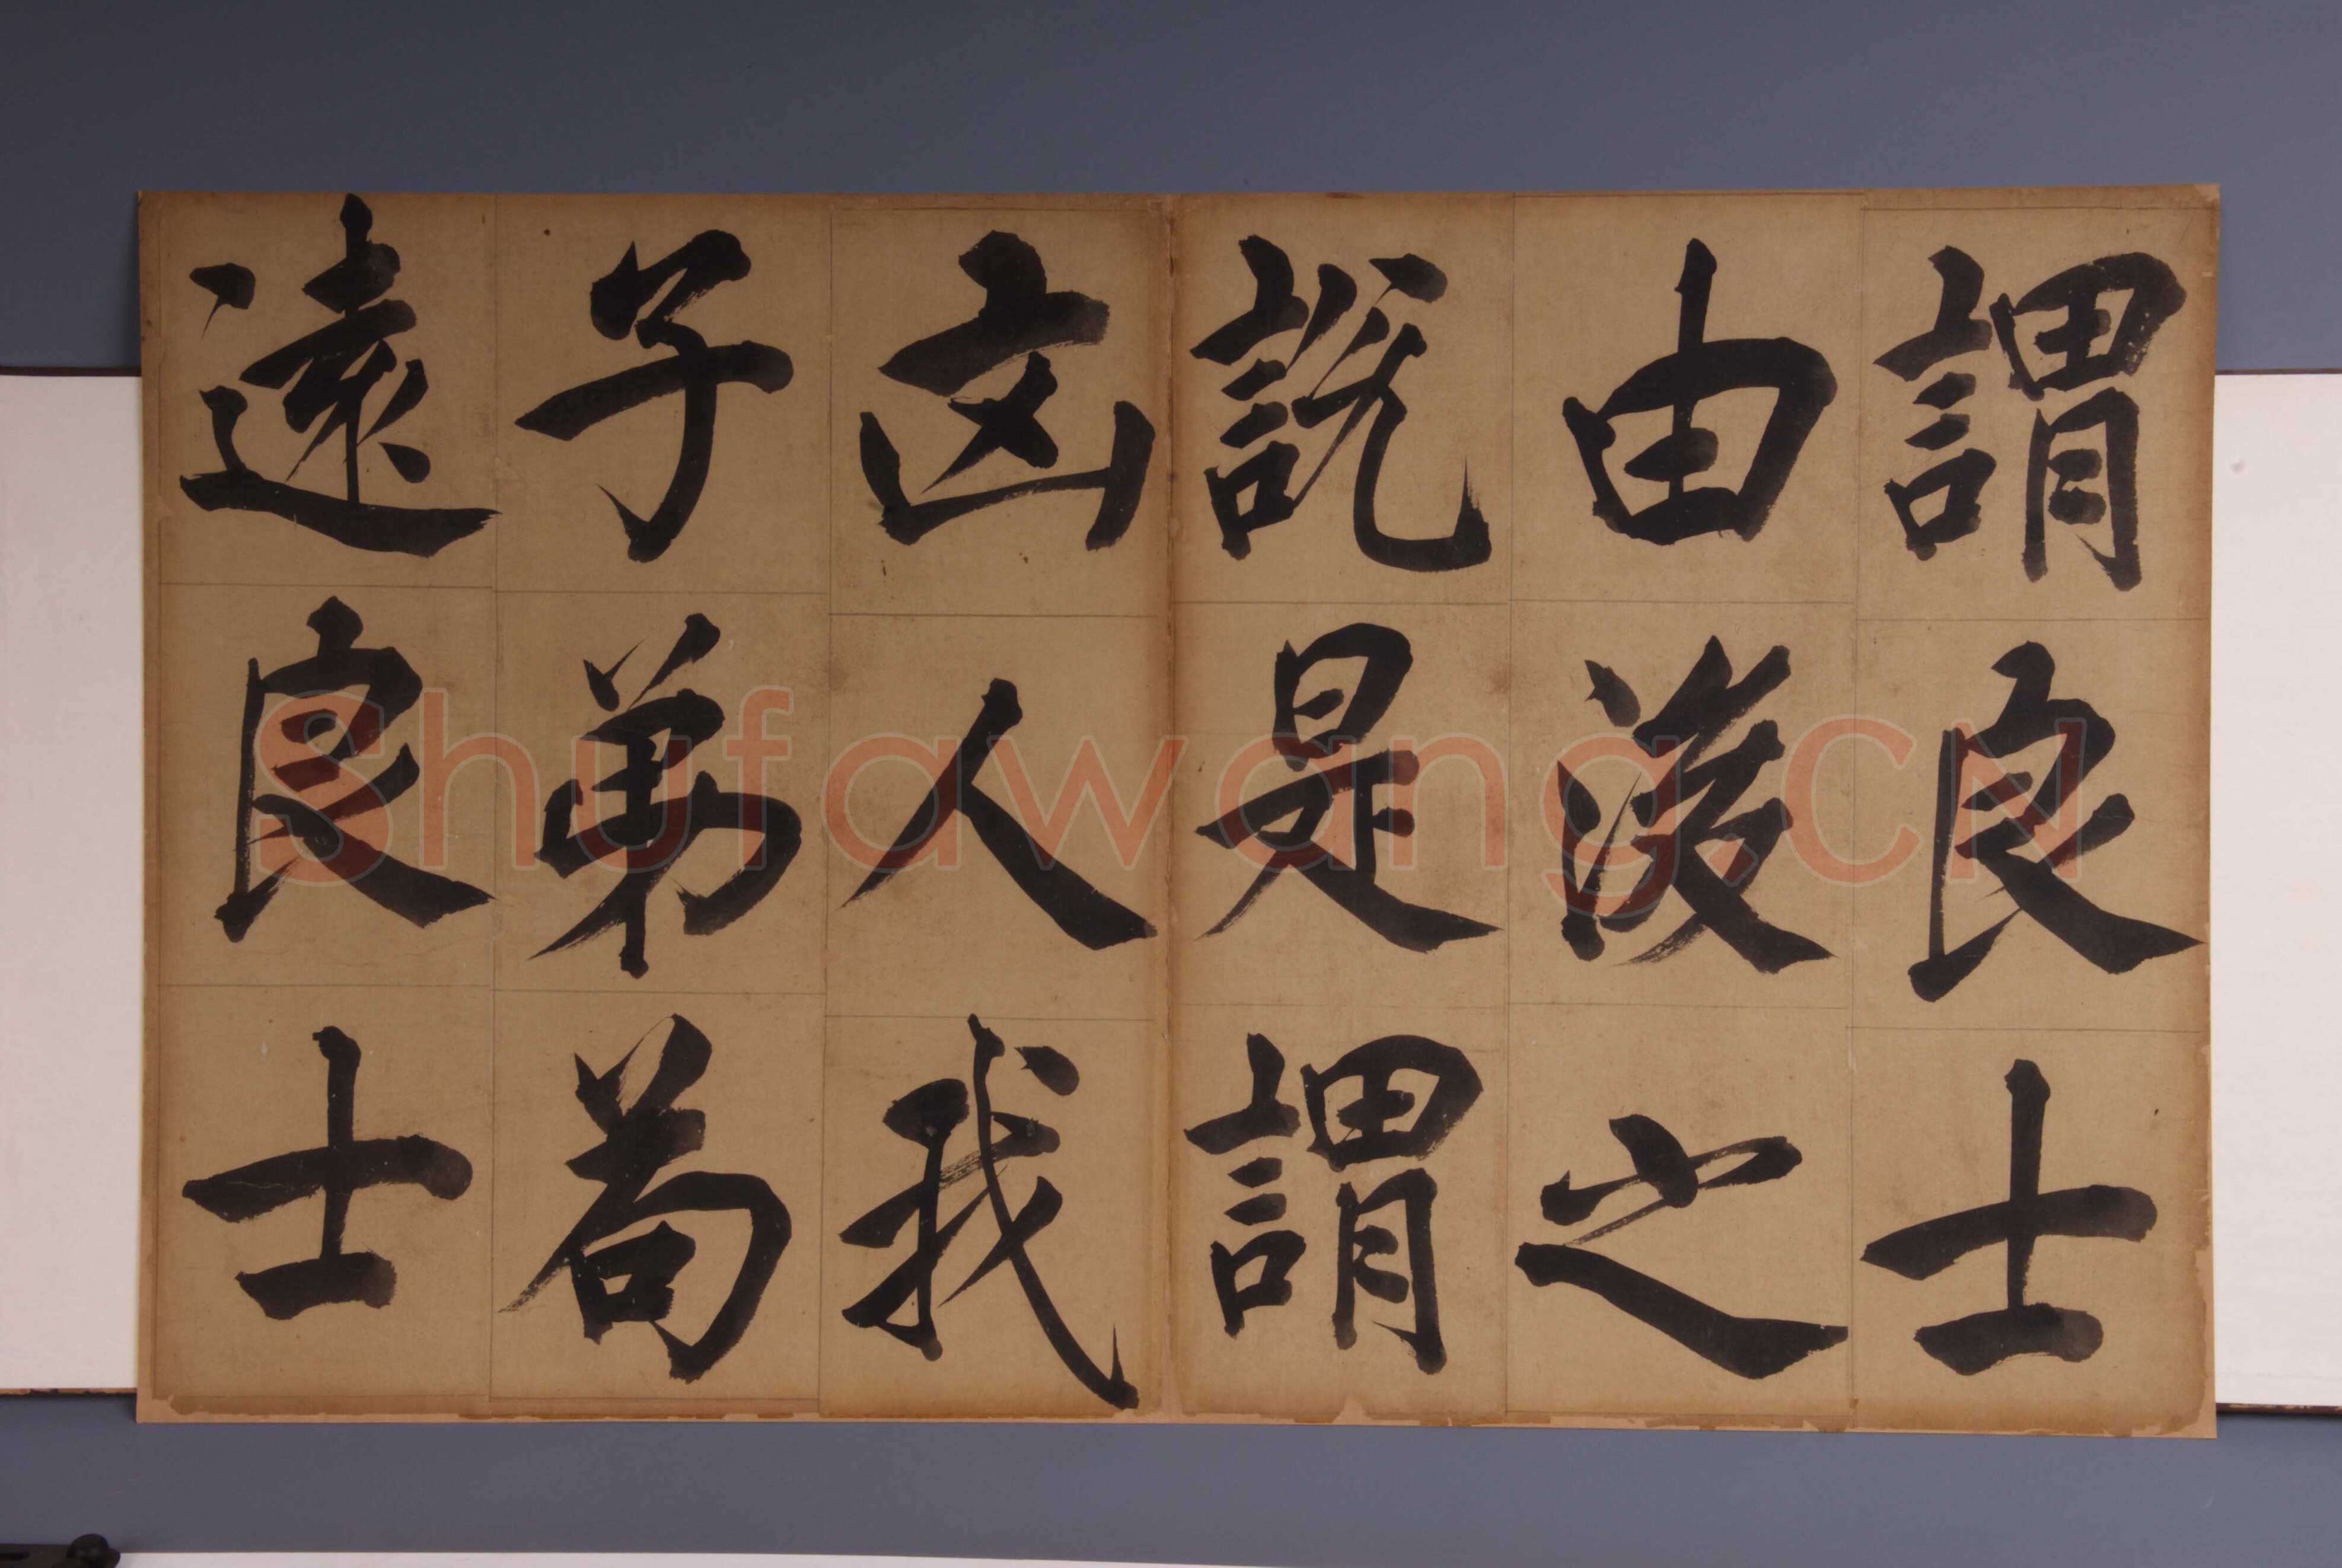 謂良士
由後之
說是謂
凶人我
子弟苟
遠良士
Shufawang.CN